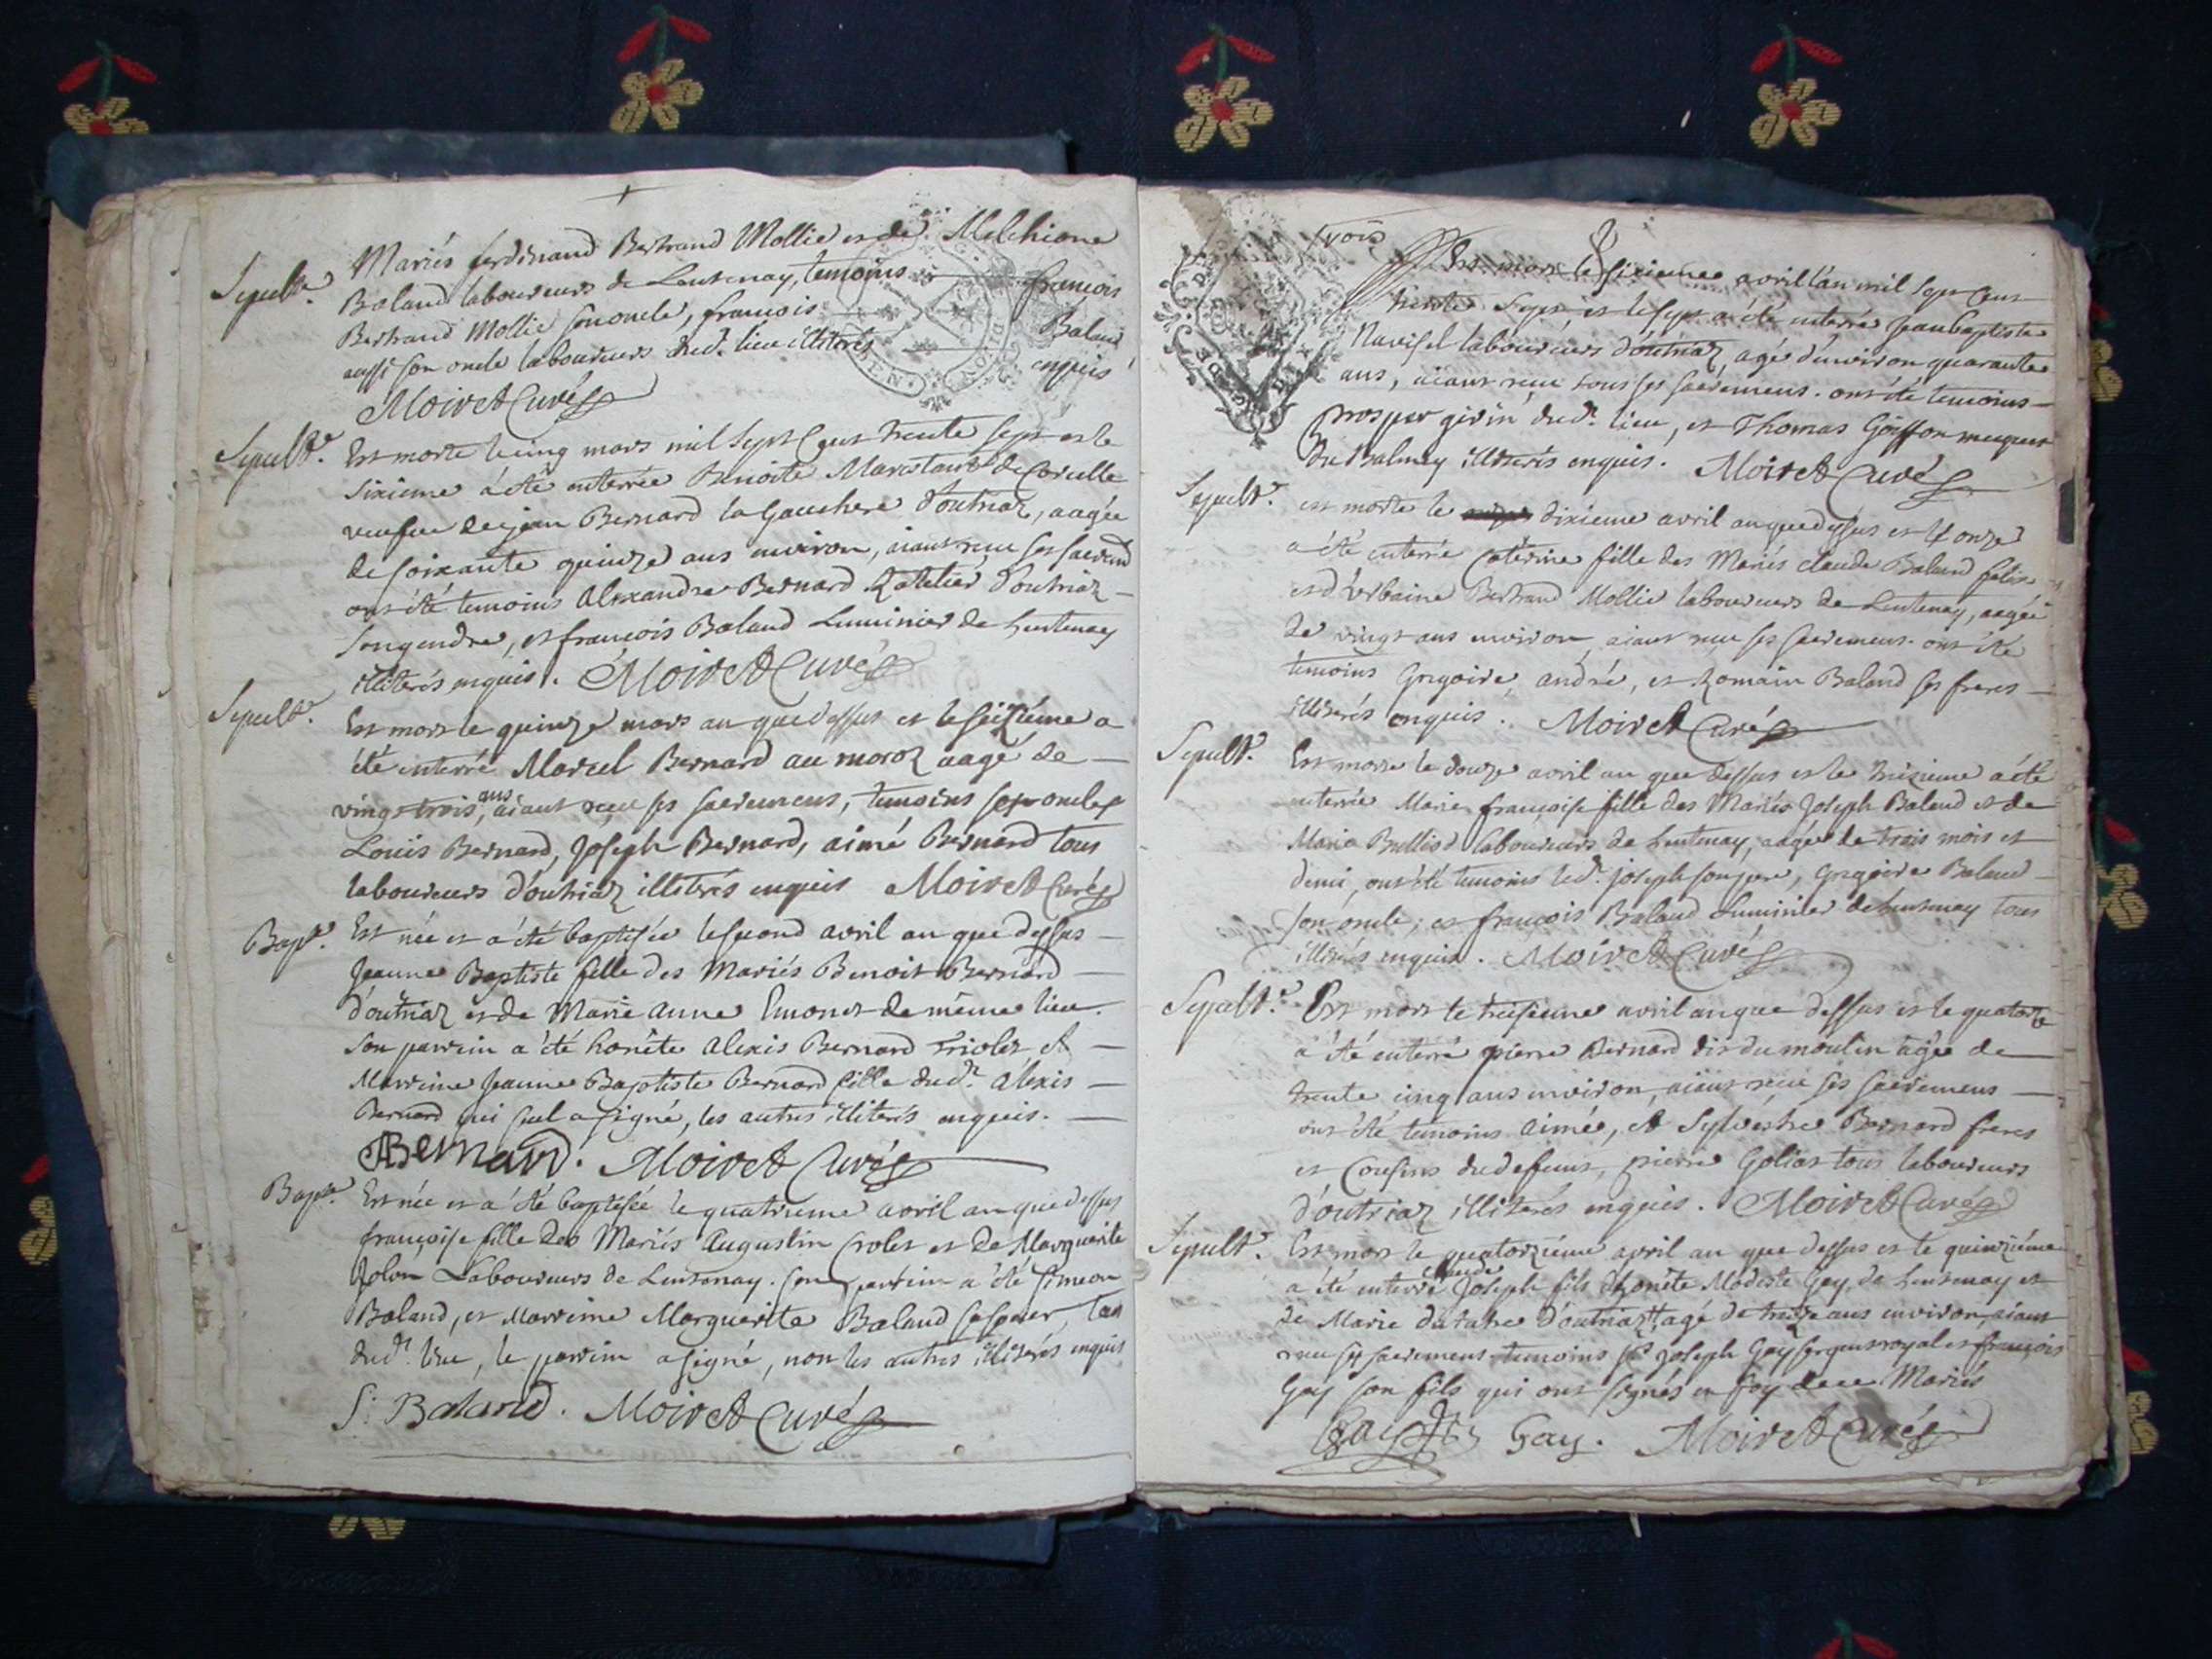 Sepult.e
Mariés ferdinand Bertrand Mollie et de Melchione
Baland laboureurs de Lentenay, temoins françois
Bertrand Mollie son oncle, françois Baland
aussi son oncle laboureurs dud.t lieu illiterés enquis
Moiret Curé
Sepult.e
Est morte le cinq mars mil sept cent trente sept et le
sixieme a été enterrée Benoite de Corcelle
veufue de jean Bernard la Gauchere d'outriaz, aagée
de soixante quinze ans environ, aiant reçu ses sacrem
ont été temoins Alexandre Bernard Ratelier d'outriaz
son gendre, et françois Baland Luminier de Lentenay
illiterés enquis. Moiret Curé
Sepult.e
Est mort le quinze mars an que dessus et le seizième a
été enterré Marcel Bernard au moroz aagé de
vingt trois ans, aiant reçu ses sacremens, temoins ses oncles
Louis Bernard, Joseph Bernard, aimé Bernard tous
laboureurs d'outriaz illiterés enquis Moiret Curé
Bapt.e
Est née et a été baptisée le second avril an que dessus
Jeanne Baptiste fille des Mariés Benoit Bernard
d'outriaz et de Marie Anne Emonet de même lieu.
Son parrein a été honête Alexis Bernard Triolet et
Marreine Jeanne Baptiste Bernard fille dud.t Alexis
Bernard qui seul a signé, les autres illiterés enquis.
ABernard. Moiret Curé
Bapt.e
Est née et a été baptisée le quatrieme avril an que dessus
françoise fille des Mariés Augustin Crolet et de Marguerite
Jolon Laboureurs de Lentenay. son parrein a été simeon
Baland, et Marreine Marguerite Baland sa soeur, tous
dud.t lieu, le parrein a signé, non les autres illiterés enquis
S. Baland. Moiret Curé
Est mort le sixieme avril l'an mil sept cent
trente sept, et le sept a été enterré jean baptiste
Navisel laboureurs d'outriaz, agé d'environ quarante
ans, aiant reçu tous ses sacremens. ont été temoins
Prosper girin dud.t lieu, et Thomas Goiffon
du Balmey illiterés enquis. Moiret Curé
Sepult.e
est morte le dixieme avril an que dessus et le onze
a été enterrée Caterine fille des Mariés Claude Baland
et d'Urbaine Bertrand Mollie laboureurs de Lentenay, aagée
de vingt ans environ, aiant reçu ses sacremens. ont été
temoins Grigoire, andré, et Romain Baland ses freres
illiterés enquis. Moiret Curé
Sepult.e
Est morte le douze avril an que dessus et le treizieme a été
enterrée Marie françoise fille des Mariés Joseph Baland et de
Marie Bulliod laboureurs de Lentenay, aagée de trois mois et
demi, ont été temoins led.t joseph son pere, Grigoire Baland
son oncle; et françois Baland Luminier de Lentenay tous
illiterés enquis. Moiret Curé
Sepult.e
Est mort le treisieme avril an que dessus et le quatorze
a été enterré pierre Bernard dit du moulin agé de
trente cinq ans environ, aiant reçu ses sacremens
ont été temoins aimée, et Sylvestre Bernard freres
et Cousins du defunt, pierre Golias tous laboureurs
d'outriaz illiterés enquis. Moiret Curé
Sepult.e
Est mort le quatorzième avril an que dessus et le quinzième
a été enterré claude Joseph fils d'honête Modeste Gay de Lentenay et
de Marie d'outriaz, agé de treize ans environ, aiant
reçu ses sacremens temoins s.r joseph Gay sergent royal et françois
Gay son fils qui ont signés en foy de ce Mariés
Gay Gay. Moiret Curé